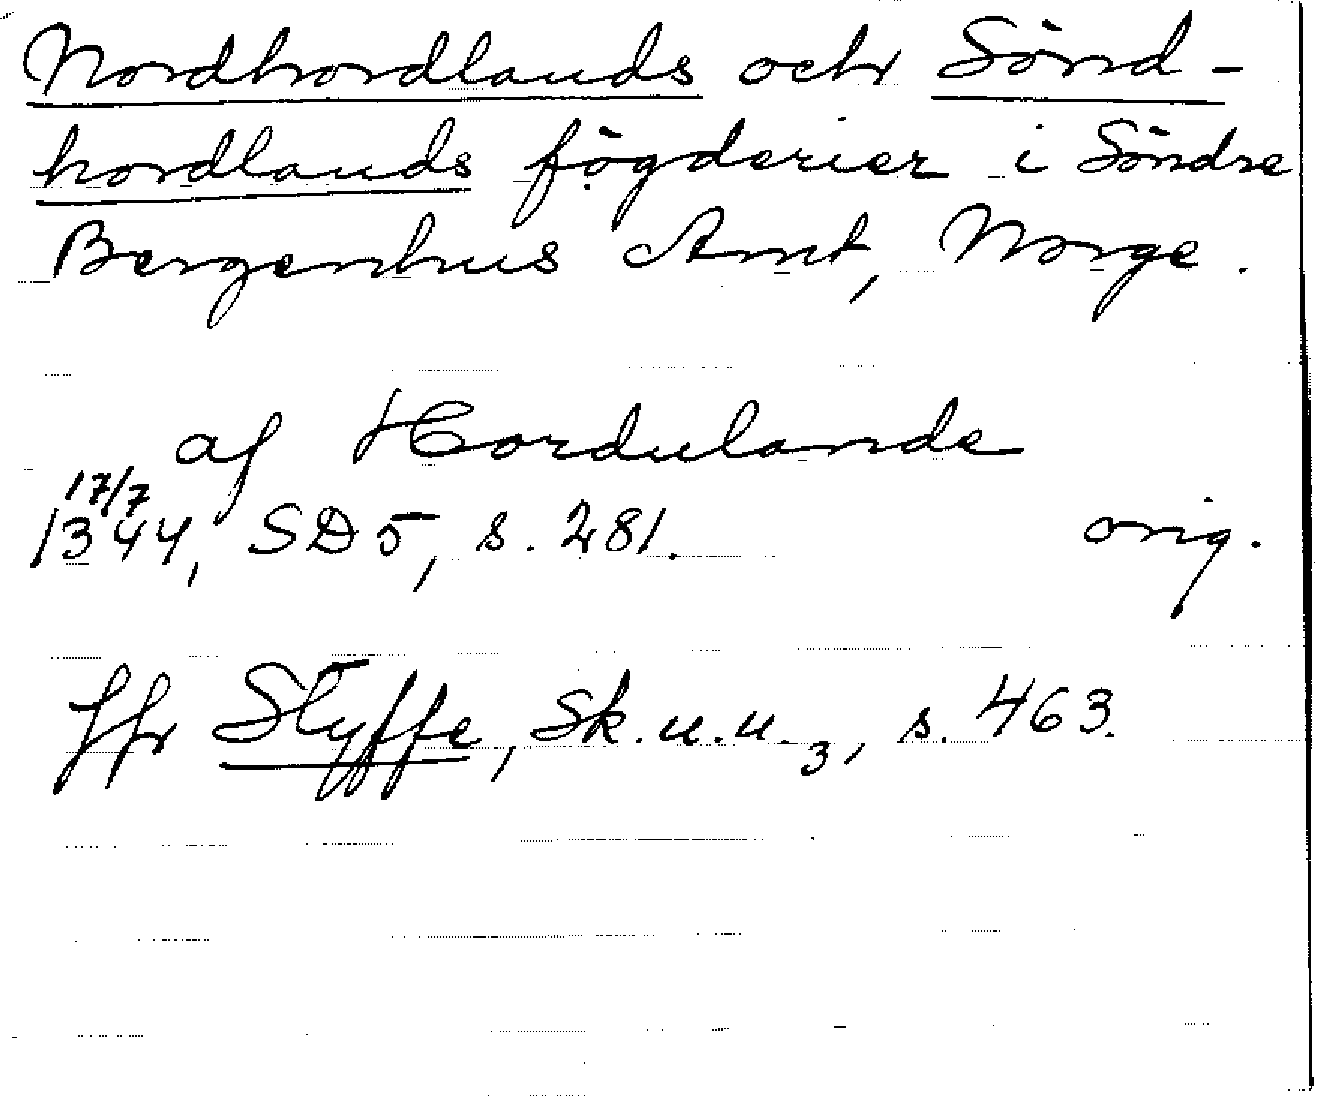 Nordhordlands och Sönd-
hordlands fögderier i Söndre
Bergenhus Amt, Norge.
af Hordulande
17/7
1344, SD 5, s. 281. orig.
Jfr Styffe, Sk. u. u. 3, s. 463.